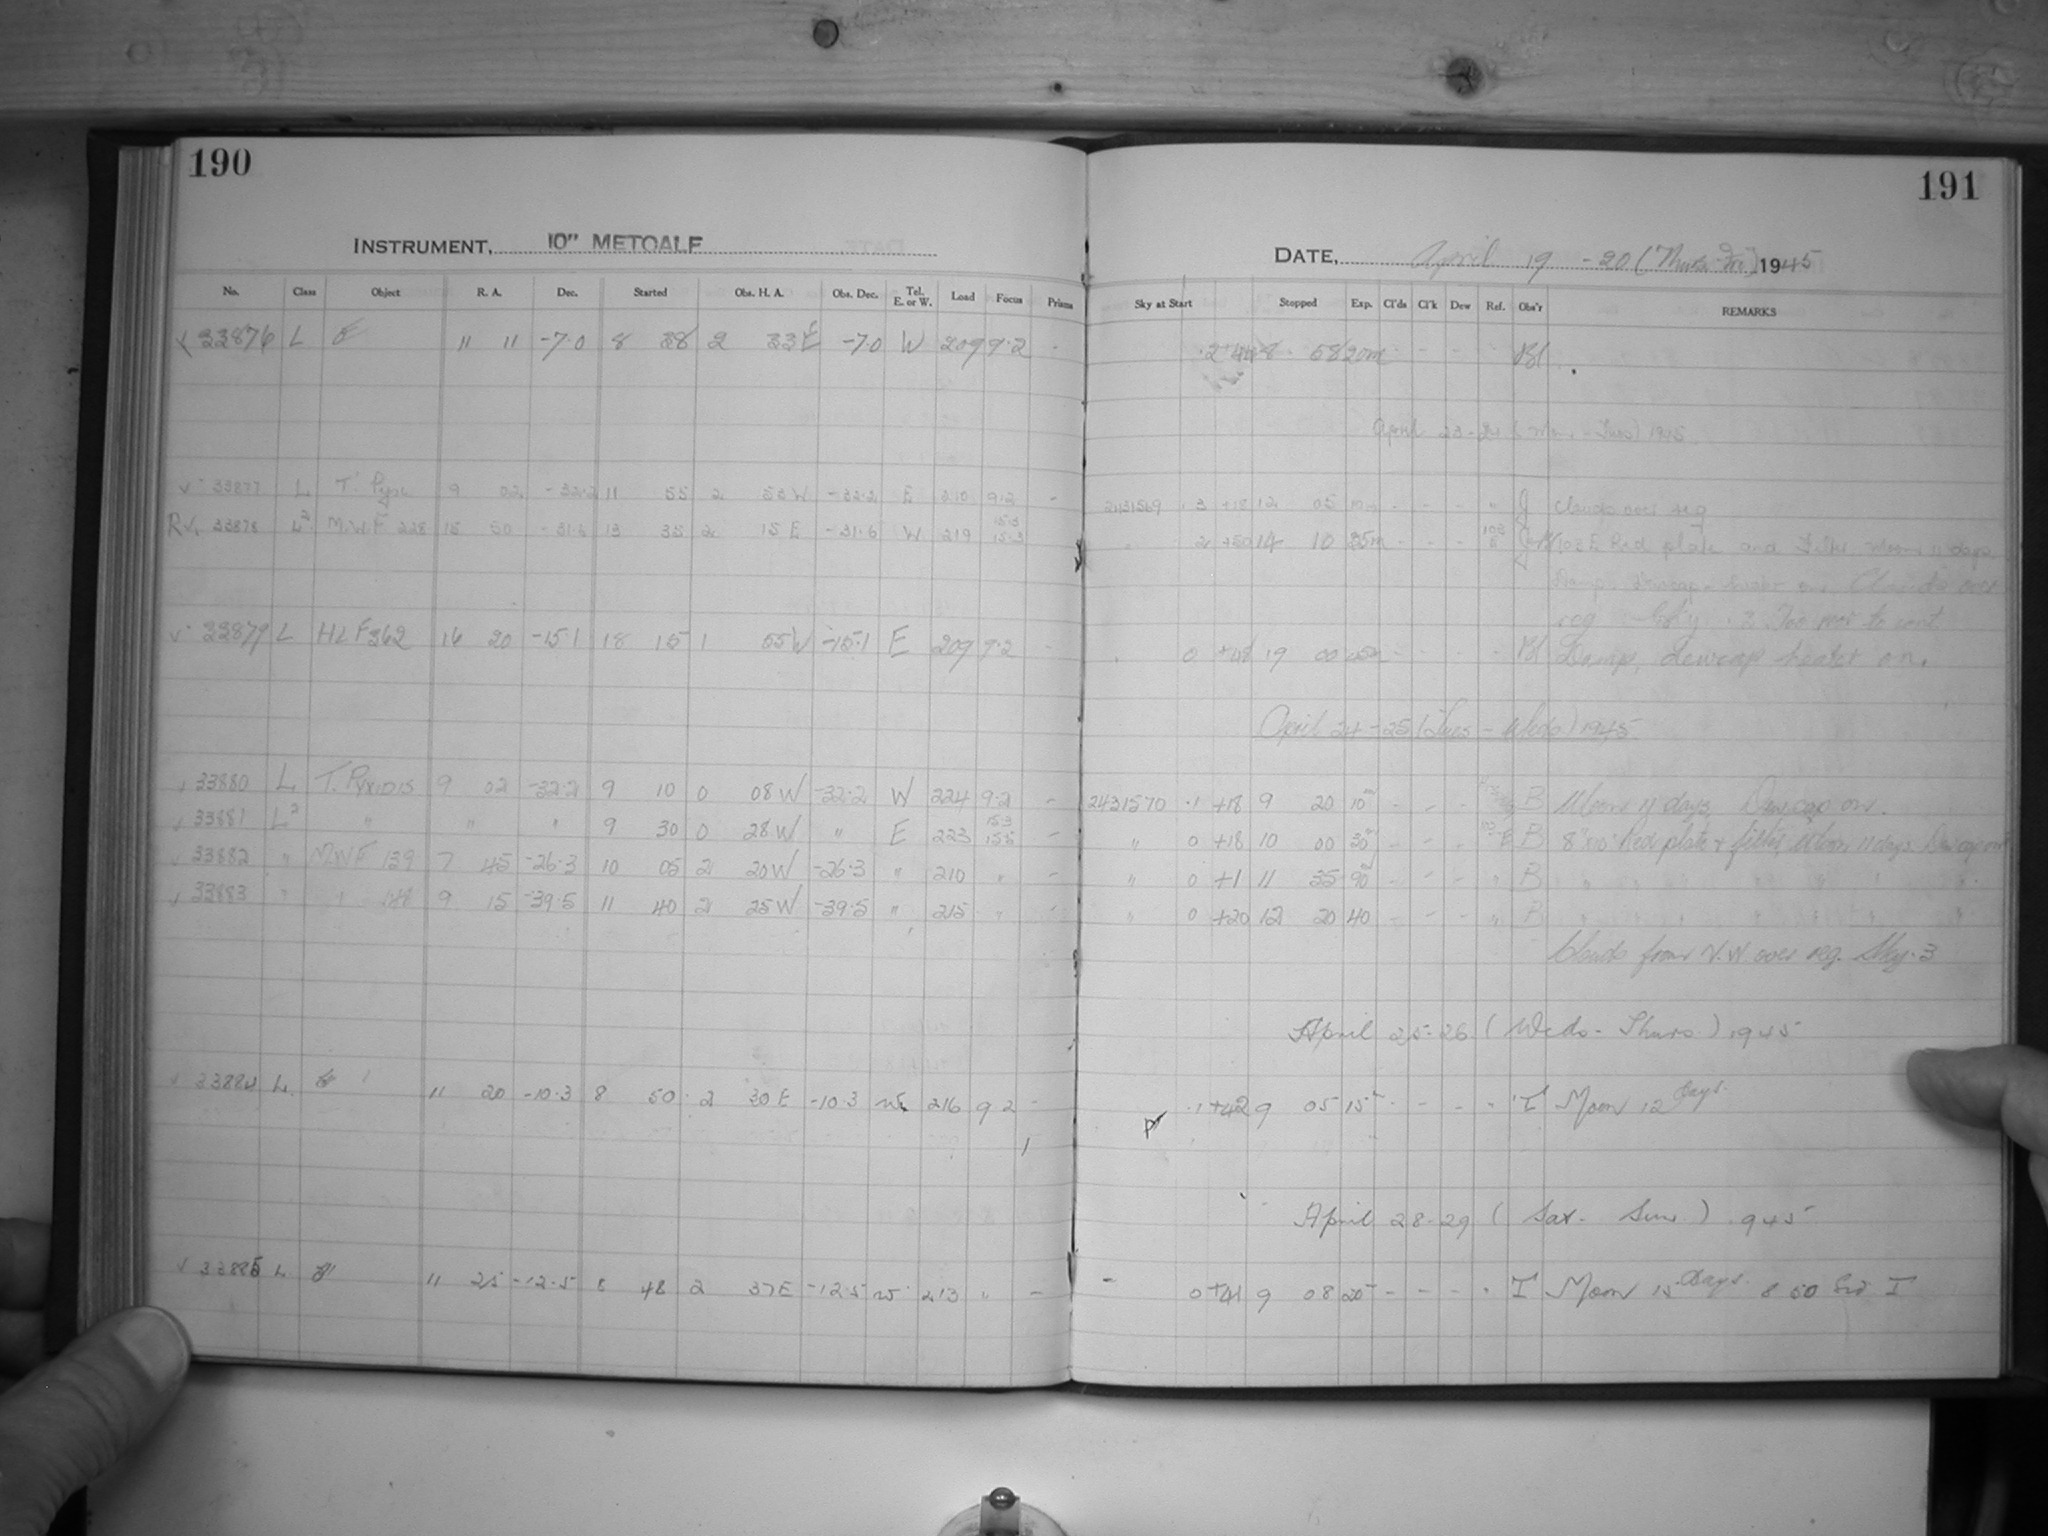 190
191
INSTRUMENT, 10" METCALF
DATE, April 19 - 20 (Thurs-Fri) 1945
No. Class Object R. A. Dec. Started Obs. H. A. Obs. Dec. Tel. E. or W. Load Focus Prisms Sky at Start Stopped Exp. Cl'ds Cl'k Dew Ref. Obs'r REMARKS
33876 L 11 11 -7.0 8 38 2 33 E -7.0 W 209 9.2 - 8 58 20m - - -
April 23-24 (Mon - Tues) 1945
33877 L T. Pyx 9 02 -32.2 11 55 2 53 W -32.2 E 210 9.2 - 2431569 .3 +18 12 05 10m - - - " J Clouds over reg
Rv. 33878 L² M.W.F. 228 15 50 -31.6 13 35 2 15 E -31.6 W 219 15.3 " 2 +50 14 10 35m - - - 103 E Red plate and Filter Moon 11 days
Damp. Dewcap heater on. Clouds over
reg Too poor to cont.
33879 L HLF 362 16 20 -15.1 18 15 1 55 W -15.1 E 209 9.2 - 0 +48 19 00 - - - - Damp, dewcap heater on.
April 24-25 (Tues - Weds) 1945
33880 L T. PYXIDIS 9 02 -32.2 9 10 0 08 W -32.2 W 224 9.2 - 2431570 .1 +18 9 20 10m - - - B Moon 11 days, Dewcap on.
33881 L² " " " 9 30 0 28 W " E 223 15.3 - " 0 +18 10 00 30m - - - 103 E B 8"x10" Red plate & filter, Moon 11 days. Dewcap on
33882 " M.W.F 139 7 45 -26.3 10 05 2 20 W -26.3 " 210 " - " 0 +1 11 35 90m - - - " B " " " " "
33883 " " 9 15 -39.5 11 40 2 25 W -39.5 " 215 " - " 0 +20 12 20 40 - - - " B " " " " "
Clouds from N.W over reg. Sky .3
April 25-26 (Weds - Thurs.) 1945
33884 L 11 20 -10.3 8 50 2 30 E -10.3 W 216 9.2 - .1 +42 9 05 15m - - - - I Moon 12 Days.
April 28-29 (Sat - Sun.) 1945
33885 L 11 25 -12.5 8 48 2 37 E -12.5 W 213 " - - 0 +41 9 08 20m - - - - I Moon 15 Days. 8 50 I